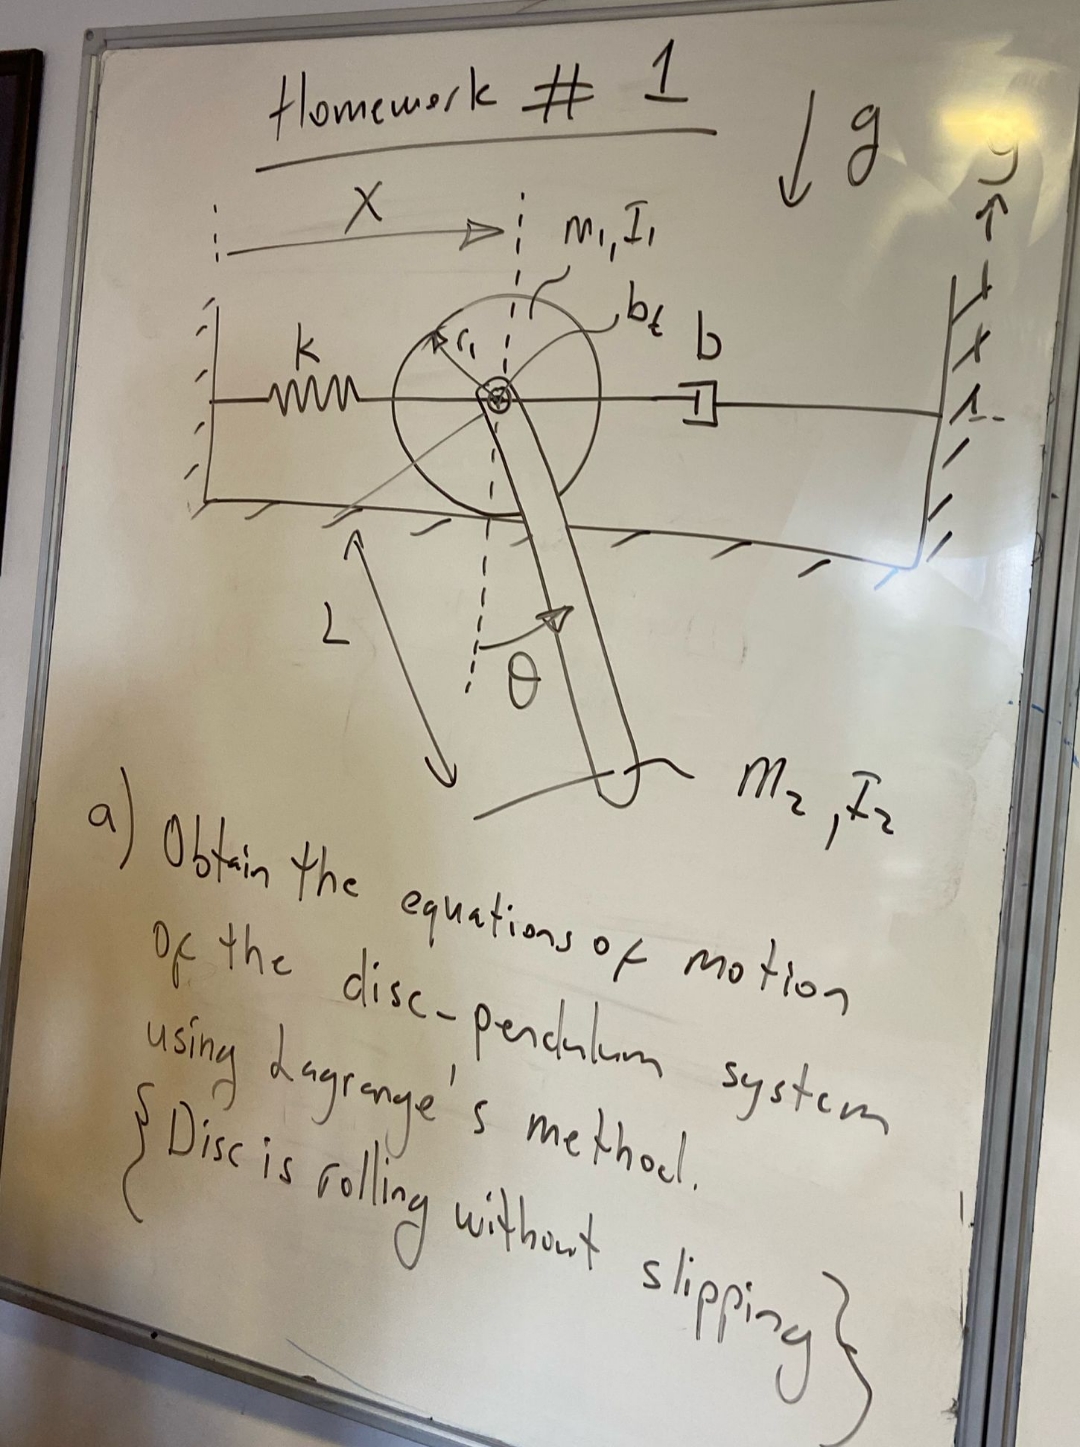 Homework # 1
g
y
X
m₁, I₁
bt
k
r₁
b
L
θ
m₂, I₂
a) Obtain the equations of motion
of the disc-pendulum system
using Lagrange's method.
{Disc is rolling without slipping}